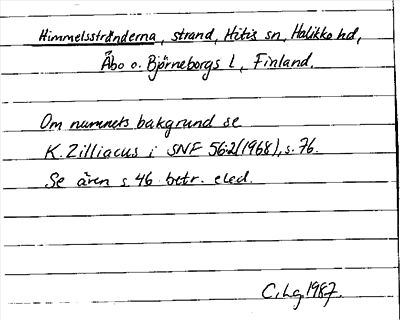 Himmelsstränderna, strand, Hitis sn, Halikko hd,
Åbo o. Björneborgs l, Finland.
Om namnets bakgrund se
K. Zilliacus i SNF 56:2(1968), s. 76.
Se även s. 46 betr. eled.
C. Lg 1987.